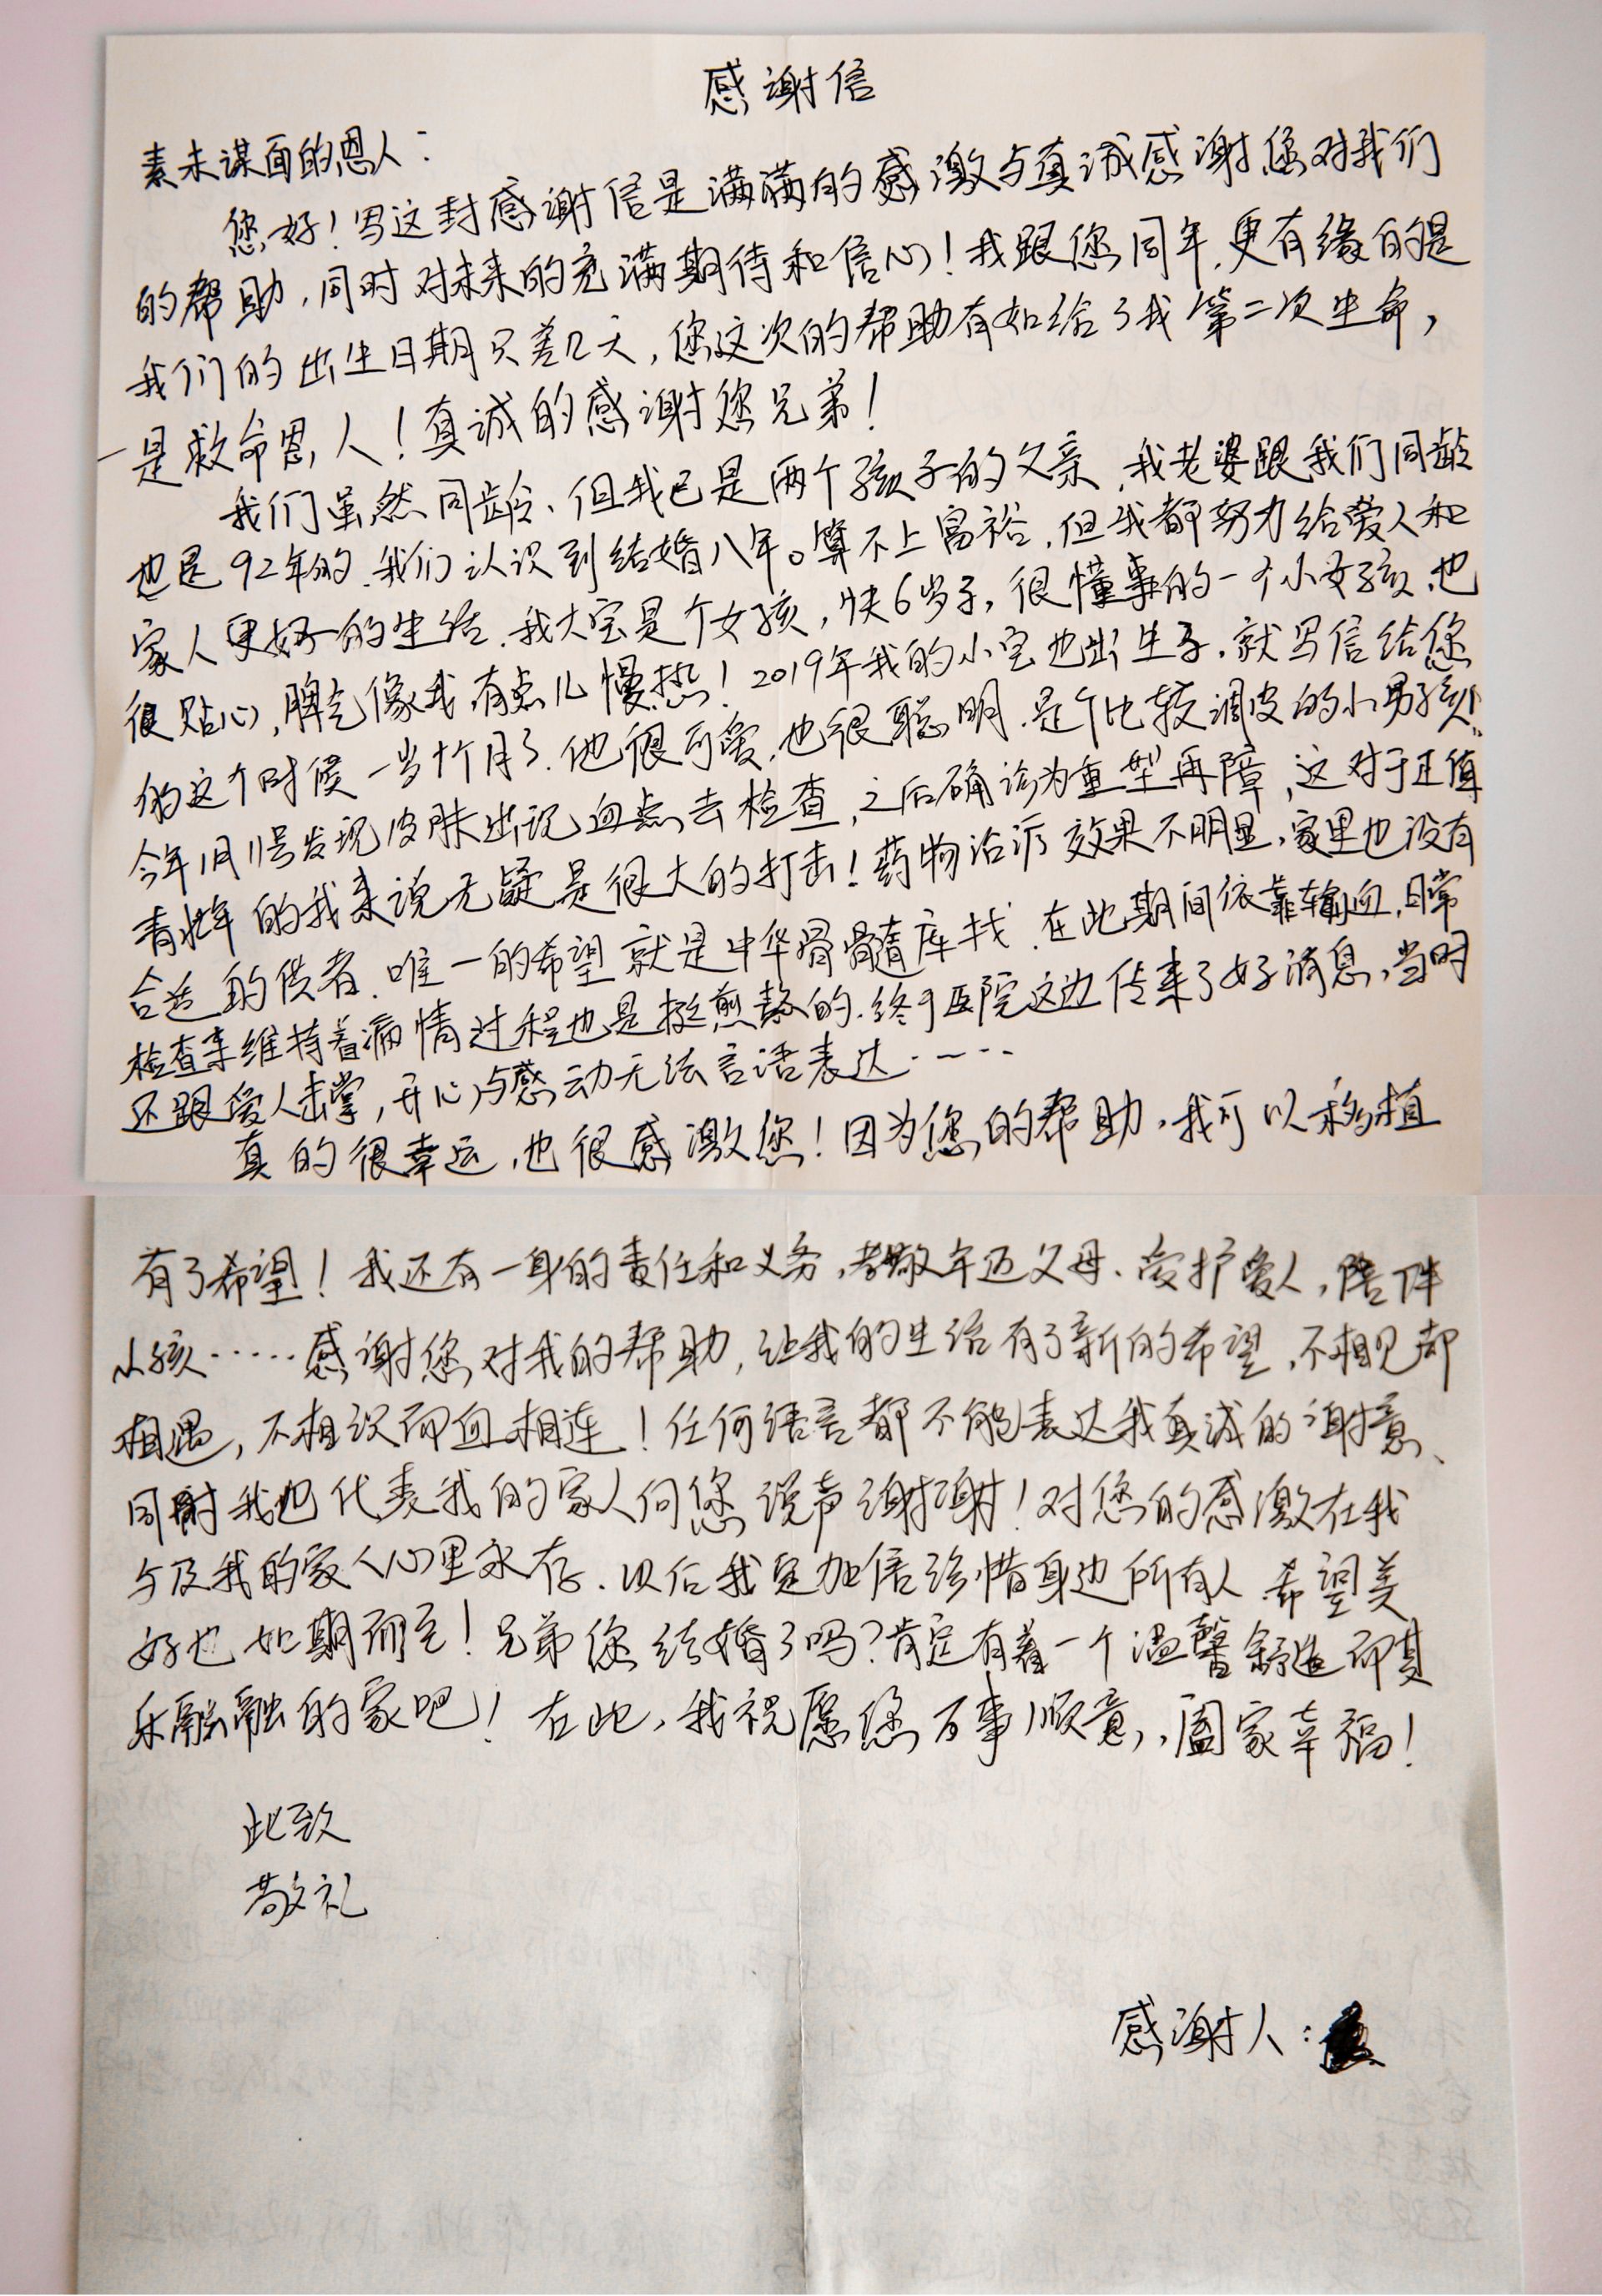 感谢信
素未谋面的恩人：
您好！写这封感谢信是满满的感激与真诚感谢您对我们
的帮助，同时对未来的充满期待和信心！我跟您同年，更有缘的是
我们的出生日期只差几天，您这次的帮助有如给了我第二次生命，
是救命恩人！真诚的感谢您兄弟！
我们虽然同龄、但我已是两个孩子的父亲，我老婆跟我们同龄
也是92年的，我们认识到结婚八年。算不上富裕，但我都努力给爱人和
家人更好的生活，我大宝是个女孩，快6岁了，很懂事的一个小女孩，也
很贴心，脾气像我有点儿慢热！2019年我的小宝也出生了，就写信给您
的这个时候一岁个月了，他很可爱，也很聪明，是个比较调皮的小男孩！
今年1月11号发现皮肤出现血点去检查，之后确诊为重型再障，这对于正值
青壮年的我来说无疑是很大的打击！药物治疗效果不明显，家里也没有
合适的供者，唯一的希望就是中华骨髓库找，在此期间依靠输血，日常
检查来维持着病情过程也是挺煎熬的，终于医院这边传来了好消息，当时
还跟爱人击掌，开心与感动无法言语表达……
真的很幸运，也很感激您！因为您的帮助，我可以移植
有了希望！我还有一身的责任和义务，孝敬年迈父母、爱护爱人，陪伴
小孩……感谢您对我的帮助，让我的生活有了新的希望，不相见却
相遇，不相识而血相连！任何语言都不能表达我真诚的谢意、
同时我也代表我的家人向您说声谢谢！对您的感激在我
与及我的家人心里永存，以后我定加倍珍惜身边所有人，希望美
好也如期而至！兄弟您结婚了吗？肯定有着一个温馨舒适而其
乐融融的家吧！在此，我祝愿您万事顺意，阖家幸福！
此致
敬礼
感谢人：